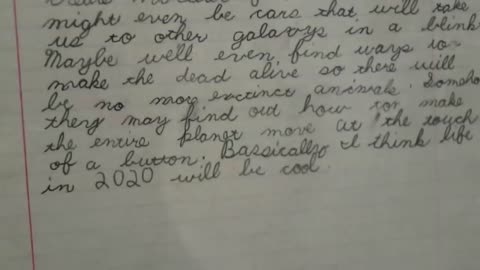 might even be cars that will take
us to other galaxys in a blink
Maybe well even find ways to
make the dead alive so there will
be no mor exctinct animals. Someho
they may find out how to make
the entire planet move at the touch
of a button. Bassically I think life
in 2020 will be cool.